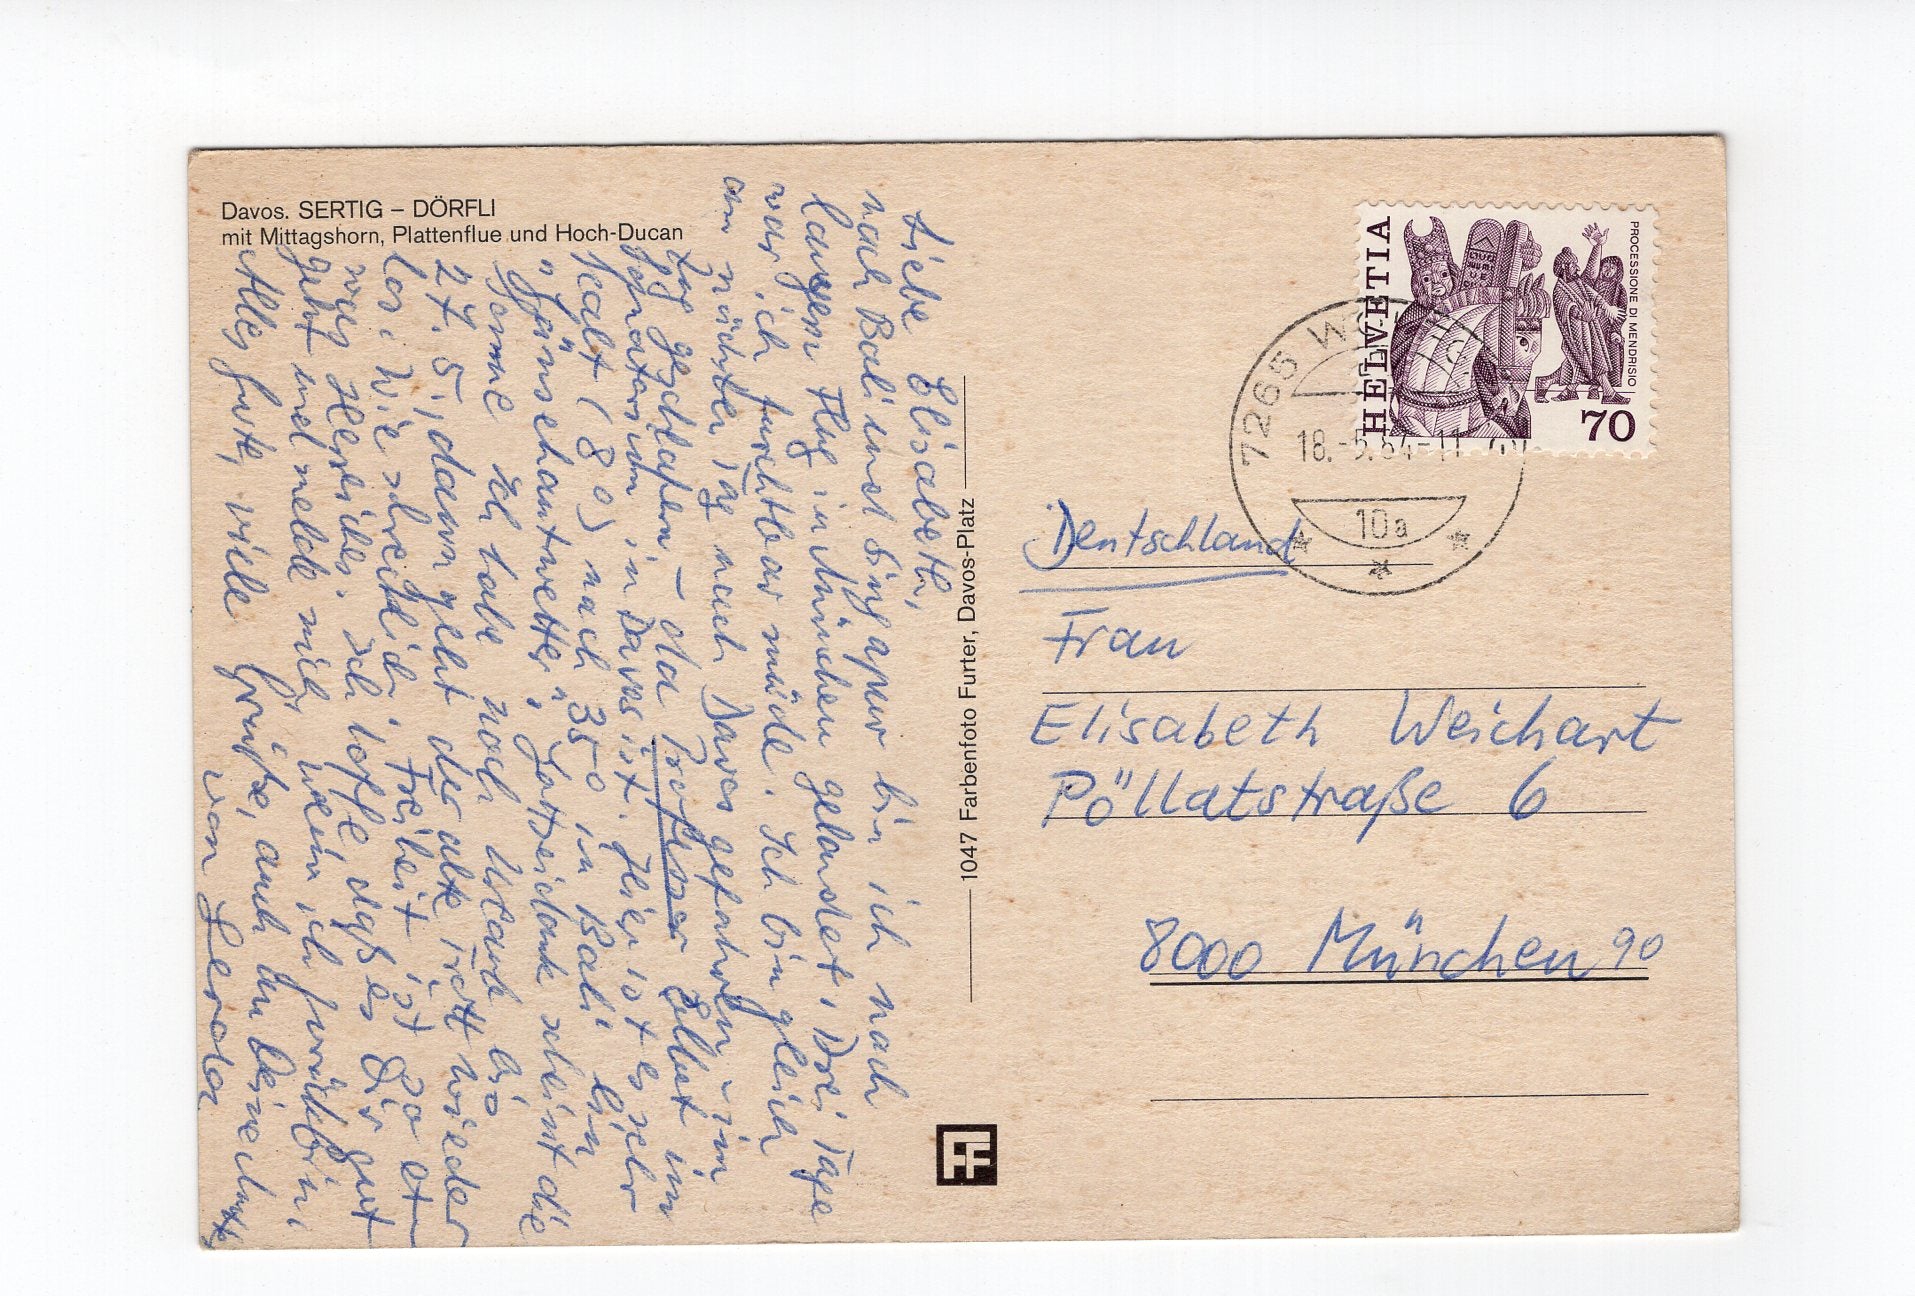 Davos. SERTIG – DÖRFLI
mit Mittagshorn, Plattenflue und Hoch-Ducan
Liebe Elisabeth,
nach Bali und Singapur bin ich nach
langem Flug in München gelandet, Drei Tage
war ich furchtbar müde. Ich bin gleich
am nächsten Tag nach Davos gefahren – im
Zug geschlafen – da Professor Ellert im
Sanatorium in Davos ist. Hier ist es sehr
kalt (8°) nach 35° in Bali ein
"Gänsehautwetter", Gottseidank scheint die
Sonne. Ich habe noch Urlaub bis
27.5., dann geht der alte Trott wieder
los. Wie schrecklich, Freiheit ist so et-
was Herrliches. Ich hoffe, daß es Dir gut
geht und melde mich, wenn ich zurück bin,
Alles Gute, viele Grüße, auch an Deine
von Gerda
1047 Farbenfoto Furter, Davos-Platz
FF
HELVETIA
PROCESSIONE DI MENDRISIO
70
7265 W
18.-5.84-11
10a
Deutschland
Frau
Elisabeth Weichart
Pöllatstraße 6
8000 München 90